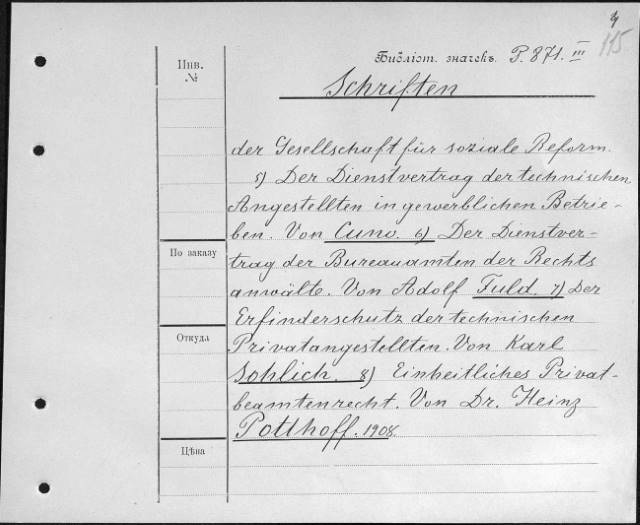 4
115
Инв. №
Библіот. значекъ. P. 871. III
Schriften
der Gesellschaft für soziale Reform.
5) Der Dienstvertrag der technischen
Angestellten in gewerblichen Betrie-
ben. Von Cuno. 6) Der Dienstver-
По заказу
trag der Bureauamten der Rechts
anwälte. Von Adolf Fuld. 7) Der
Erfinderschutz der technischen
Откуда
Privatangestellten. Von Karl
Sohlich. 8) Einheitliches Privat-
beamtenrecht. Von Dr. Heinz
Potthoff. 1908.
Цѣна